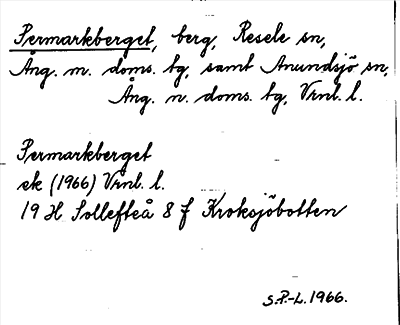 Permarkberget, berg, Resele sn,
Ång. m. doms. tg, samt Anundsjö sn,
Ång. n. doms. tg, Vrnl. l.
Permarkberget
ek (1966) Vrnl. l.
19 H Sollefteå 8 f Kroksjöbotten
S.P.-L. 1966.